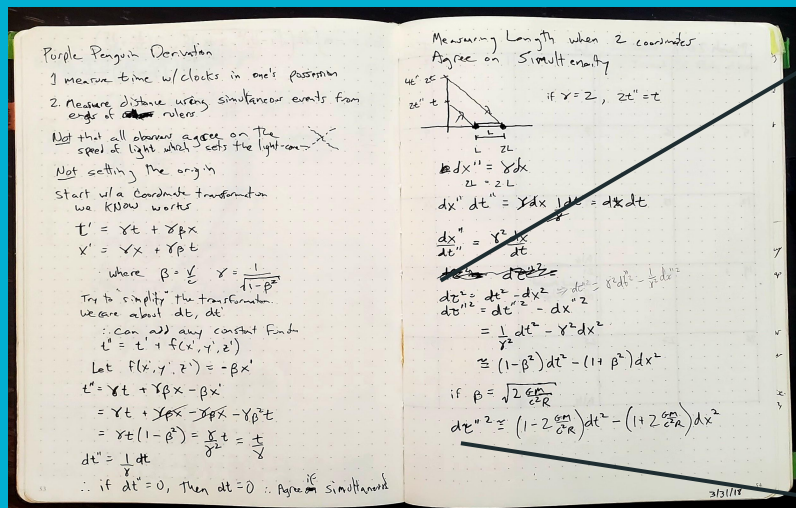 Purple Penguin Derivation
1 measure time w/clocks in one's possession
2. Measure distance using simultaneous events from
ends of rulers
Not that all observers agree on the
speed of light which sets the light-cone
Not setting the origin
Start w/a coordinate transformation
we KNOW works
t' = γt + γβx
x' = γx + γβt
where β = v/c γ = 1/√(1-β²)
Try to "simplify" the transformation.
we care about dt, dt'
∴ can add any constant func
t" = t' + f(x', y', z')
Let f(x', y', z') = -βx'
t" = γt + γβx - βx'
= γt + γβx - γβx - γβ²t
= γt(1-β²) = γ/γ² t = t/γ
dt" = 1/γ dt
∴ if dt" = 0, then dt = 0 ∴ Agree if simultaneous
Measuring Length when 2 coordinates
Agree on Simultenaity
4t" 2t
2t" t
if γ = 2, 2t" = t
λ λ
L
L 2L
dx" = γdx
2L = 2 L
dx" dt" = γdx 1/γ dt = dx dt
dx"/dt" = γ² dx/dt
dτ² = dt² - dx² ⇒ dτ² = γ²dt"² - 1/γ² dx"²
dτ"² = dt"² - dx"²
= 1/γ² dt² - γ²dx²
≅ (1-β²)dt² - (1+β²)dx²
if β = √(2 GM/c²R)
dτ"² ≅ (1-2 GM/c²R)dt² - (1+2 GM/c²R)dx²
3/31/18